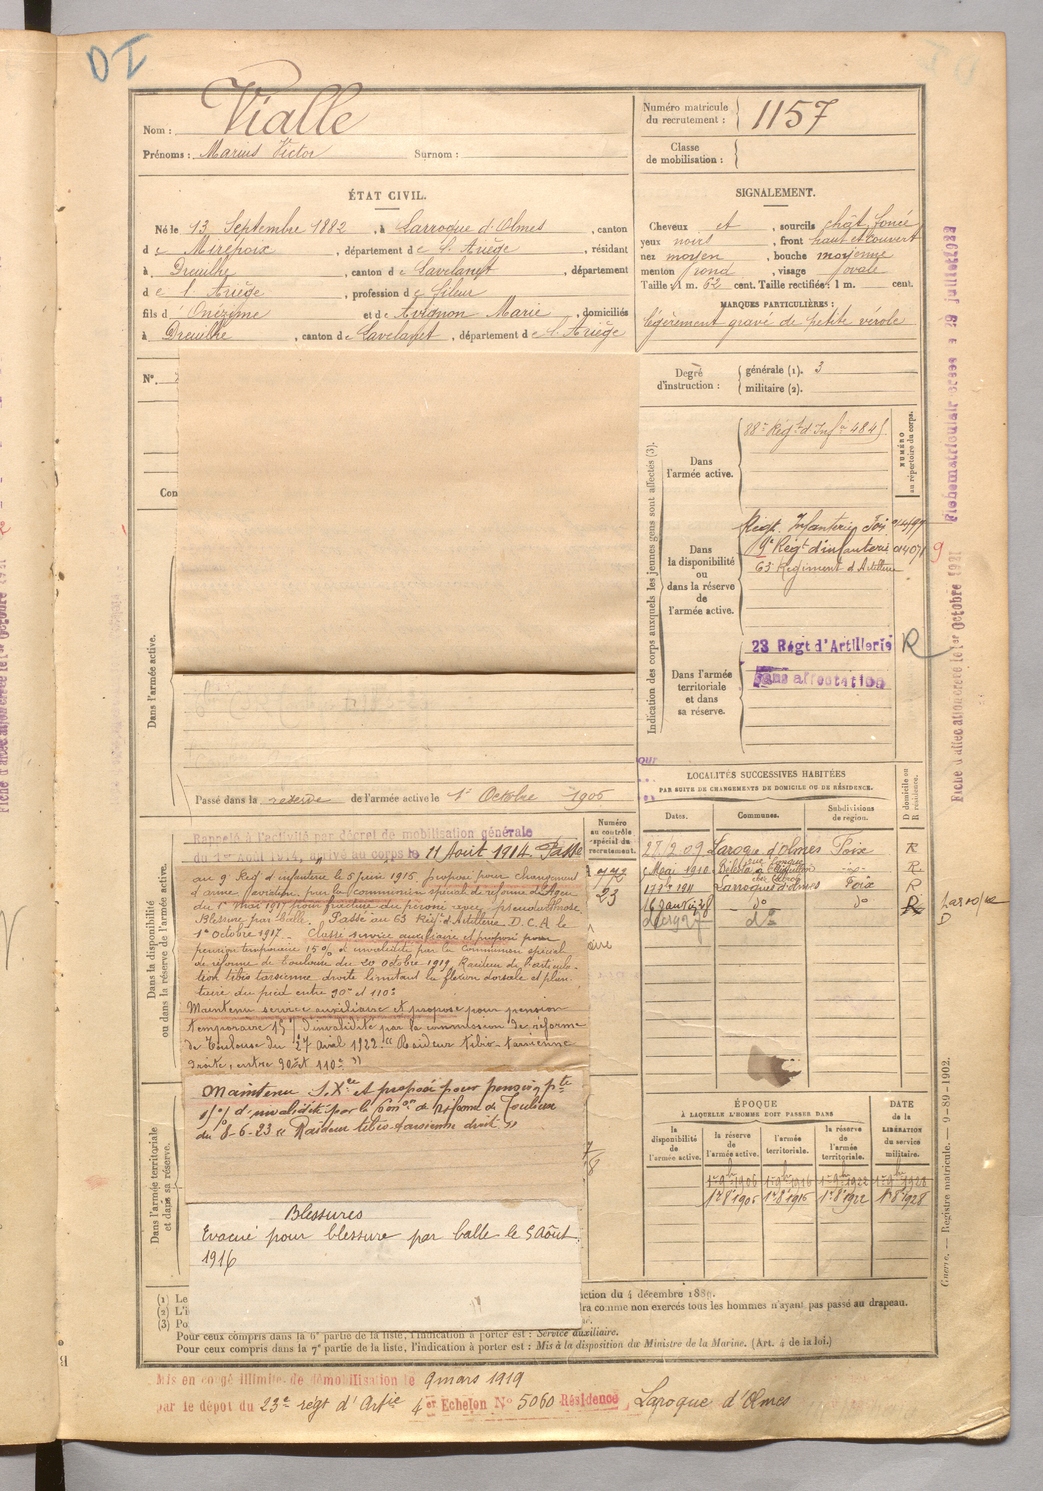 DI
Nom : Vialle
Prénoms : Marius Victor Surnom :
Numéro matricule du recrutement : 1157
Classe de mobilisation :
ÉTAT CIVIL.
Né le 13 Septembre 1882, à Larroque d'Olmes, canton
de Mirepoix, département de l'Ariège, résidant
à Dreuilhe, canton de Lavelanet, département
de l'Ariège, profession de fileur
fils d'Onézime et de Avignon Marie, domiciliés
à Dreuilhe, canton de Lavelanet, département de l'Ariège
SIGNALEMENT.
Cheveux et, sourcils chât. foncé
yeux noirs, front haut et couvert
nez moyen, bouche moyenne
menton rond, visage ovale
Taille : 1 m. 62 cent. Taille rectifiée : 1 m. cent.
MARQUES PARTICULIÈRES :
légèrement gravé de petite vérole
N°
Con
Degré d'instruction :
générale (1). 3
militaire (2).
Indication des corps auxquels les jeunes gens sont affectés (3).
NUMÉRO au répertoire du corps.
Dans l'armée active.
88e Régt d'Infie 4845
Dans la disponibilité ou dans la réserve de l'armée active.
Régt. Infanterie Foix
9e Régt d'infanterie
9
63 Régiment d'Artillerie
Dans l'armée territoriale et dans sa réserve.
23 Régt d'Artillerie R
Sans affectation
Dans l'armée active.
Passé dans la réserve de l'armée active le 1er Octobre 1906
LOCALITÉS SUCCESSIVES HABITÉES
PAR SUITE DE CHANGEMENTS DE DOMICILE OU DE RÉSIDENCE.
Dates. Communes. Subdivisions de région. D domicile ou R résidence.
2.09 Laroque d'olmès Foix R
Mai 1910 R
1911 Larroque d'olmes Foix R
16 Janvier do do
do
D
Dans la disponibilité ou dans la réserve de l'armée active.
Numéro au contrôle spécial du recrutement.
23
Rappelé à l'activité par décret de mobilisation générale
du 1er Août 1914, arrivé au corps le 11 Août 1914. Passé
au 9 Régt d'infanterie le 5 juin 1915, proposé pour changement
d'arme par la commission spéciale de réforme d'Agen
du 5 mai 1917 pour fracture du péroné avec pseudarthrose
Blessure par balle. Passé au 63 Régt d'Artillerie D.C.A. le
1er Octobre 1917. Classé service auxiliaire et proposé pour
pension temporaire 15% d'invalidité par la commission spéciale
de réforme de Toulouse du 20 octobre 1919, Raideur de l'articula-
tion tibio tarsienne droite limitant la flexion dorsale et plan-
taire du pied entre 90° et 110°
Maintenu service auxiliaire et proposé pour pension
temporaire 15% d'invalidité par la commission de réforme
de Toulouse du 27 Avril 1922 "Raideur tibio-tarsienne
droite, entre 90° et 110°"
Maintenu S. Xre et proposé pour pension pte
d'invalidité par la Comon de réforme de Toulouse
du 8-6-23 "Raideur tibio-tarsienne droite"
Dans l'armée territoriale et dans sa réserve.
Blessures
Evacué pour blessure par balle le 5 Août
1916
ÉPOQUE
À LAQUELLE L'HOMME DOIT PASSER DANS
la disponibilité de l'armée active.
la réserve de l'armée active.
l'armée territoriale.
la réserve de l'armée territoriale.
DATE de la LIBÉRATION du service militaire.
1er 8bre 1906 1er 8bre 1916 1er 8bre 1922 1er 8bre 1928
(1) Le
(2) L'i
(3) Po
nction du 4 décembre 1889.
dra comme non exercés tous les hommes n'ayant pas passé au drapeau.
Pour ceux compris dans la 6e partie de la liste, l'indication à porter est : Service auxiliaire.
Pour ceux compris dans la 7e partie de la liste, l'indication à porter est : Mis à la disposition du Ministre de la Marine. (Art. 4 de la loi.)
Guerre. — Registre matricule. — 9-89-1902.
Mis en congé illimité de démobilisation le 9 mars 1919
par le dépôt du 23e régt d'Artie 4er Echelon N° 5060 Résidence Laroque d'Olmes